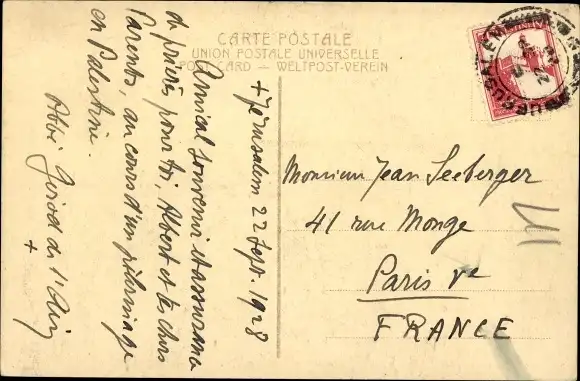 CARTE POSTALE
UNION POSTALE UNIVERSELLE
POST CARD — WELTPOST-VEREIN
+ Jérusalem 22 Sept. 1928
Amical souvenir et assurance
de prières pour toi, Albert et tes chers
Parents, au cours d'un pèlerinage
en Palestine.
Abbé
+
Monsieur Jean Seeberger
41 rue Monge
Paris Ve
FRANCE
JERUSALEM